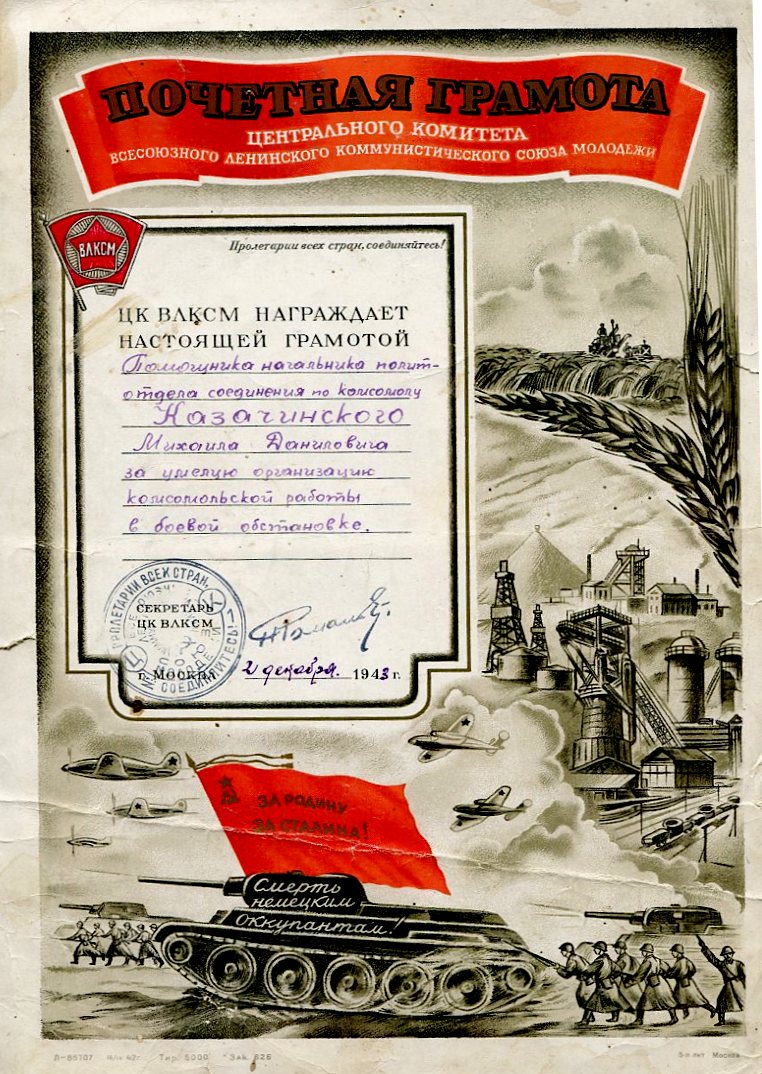 ПОЧЕТНАЯ ГРАМОТА
ЦЕНТРАЛЬНОГО КОМИТЕТА
ВСЕСОЮЗНОГО ЛЕНИНСКОГО КОММУНИСТИЧЕСКОГО СОЮЗА МОЛОДЕЖИ
ВЛКСМ
Пролетарии всех стран, соединяйтесь!
ЦК ВЛКСМ НАГРАЖДАЕТ
НАСТОЯЩЕЙ ГРАМОТОЙ
Помощника начальника полит-
отдела соединения по комсомолу
Казачинского
Михаила Даниловича
за умелую организацию
комсомольской работы
в боевой обстановке.
ПРОЛЕТАРИИ ВСЕХ СТРАН, СОЕДИНЯЙТЕСЬ!
СЕКРЕТАРЬ
ЦК ВЛКСМ
г. Москва 2 декабря 1943 г.
ЗА РОДИНУ
ЗА СТАЛИНА!
Смерть
немецким
оккупантам!
Л-85707 Тир. 5000 Зак. 626
Москва